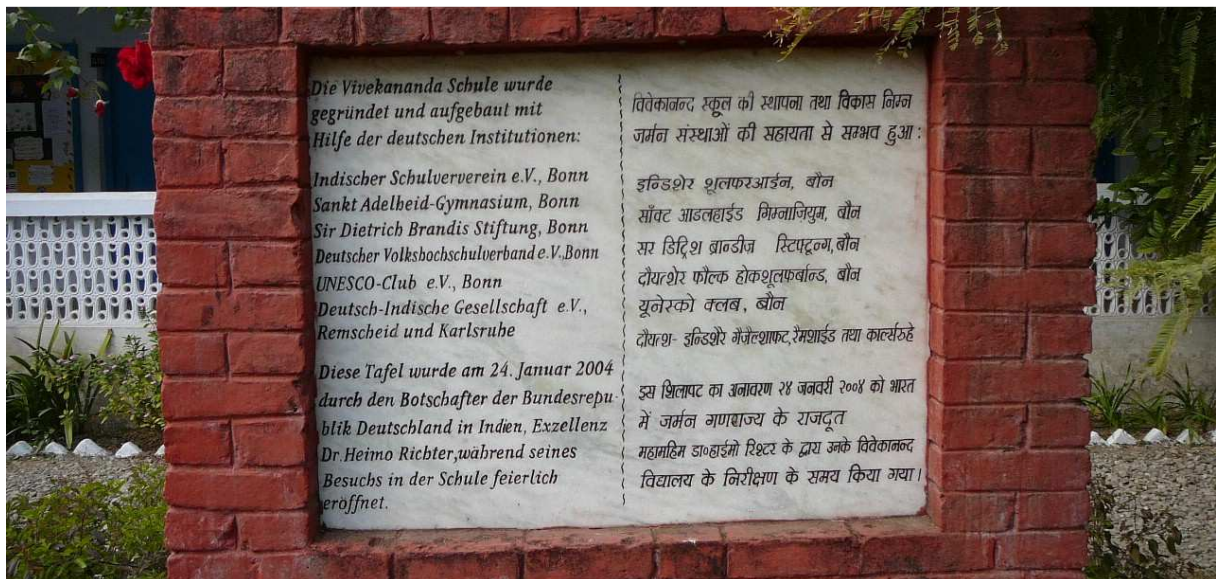 Die Vivekananda Schule wurde
gegründet und aufgebaut mit
Hilfe der deutschen Institutionen:
Indischer Schulververein e.V., Bonn
Sankt Adelheid-Gymnasium, Bonn
Sir Dietrich Brandis Stiftung, Bonn
Deutscher Volkshochschulverband e.V.,Bonn
UNESCO-Club e.V., Bonn
Deutsch-Indische Gesellschaft e.V.,
Remscheid und Karlsruhe
Diese Tafel wurde am 24. Januar 2004
durch den Botschafter der Bundesrepu-
blik Deutschland in Indien, Exzellenz
Dr. Heimo Richter, während seines
Besuchs in der Schule feierlich
eröffnet.
विवेकानन्द स्कूल की स्थापना तथा विकास निम्न
जर्मन संस्थाओं की सहायता से सम्भव हुआ :
इन्डिशेर शूलफरआईन, बौन
साँक्ट आडलहाईड गिम्नाजियुम, बौन
सर डिट्रिश ब्रान्डीज़ स्टिफ्टून्ग, बौन
दौयत्शेर फौल्क होकशूलफर्बान्ड, बौन
यूनेस्को क्लब, बौन
दौयत्श- इन्डिशैरे गैजेल्शाफट, रैमशाईड तथा कार्ल्सरुहे
इस शिलापट का अनावरण २४ जनवरी २००४ को भारत
में जर्मन गणराज्य के राजदूत
महामहिम डा॰हाईमो रिश्टर के द्वारा उनके विवेकानन्द
विद्यालय के निरीक्षण के समय किया गया।